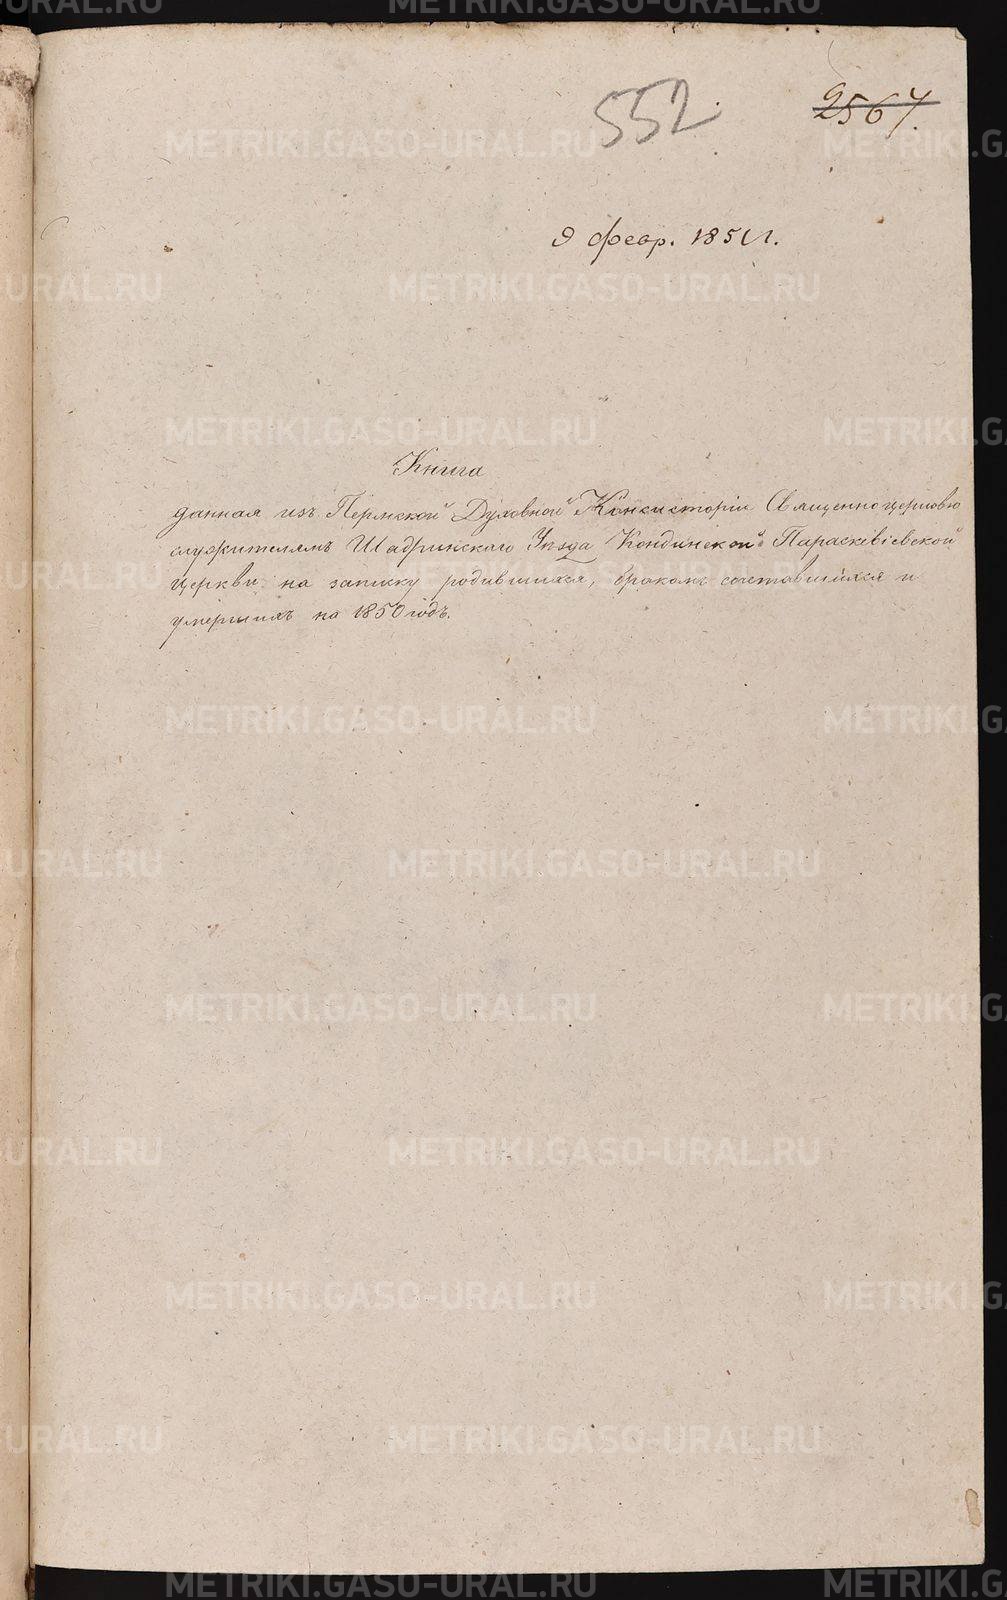 552
2567
9 февр. 1851 г.
Книга
данная изъ Пермской Духовной Консисторіи Священноцерковно
служителямъ Шадринскаго Уѣзда Кондинской Параскевіевской
церкви, на записку родившихся, бракомъ сочетавшихся и
умершихъ на 1850 годъ.
METRIKI.GASO-URAL.RU